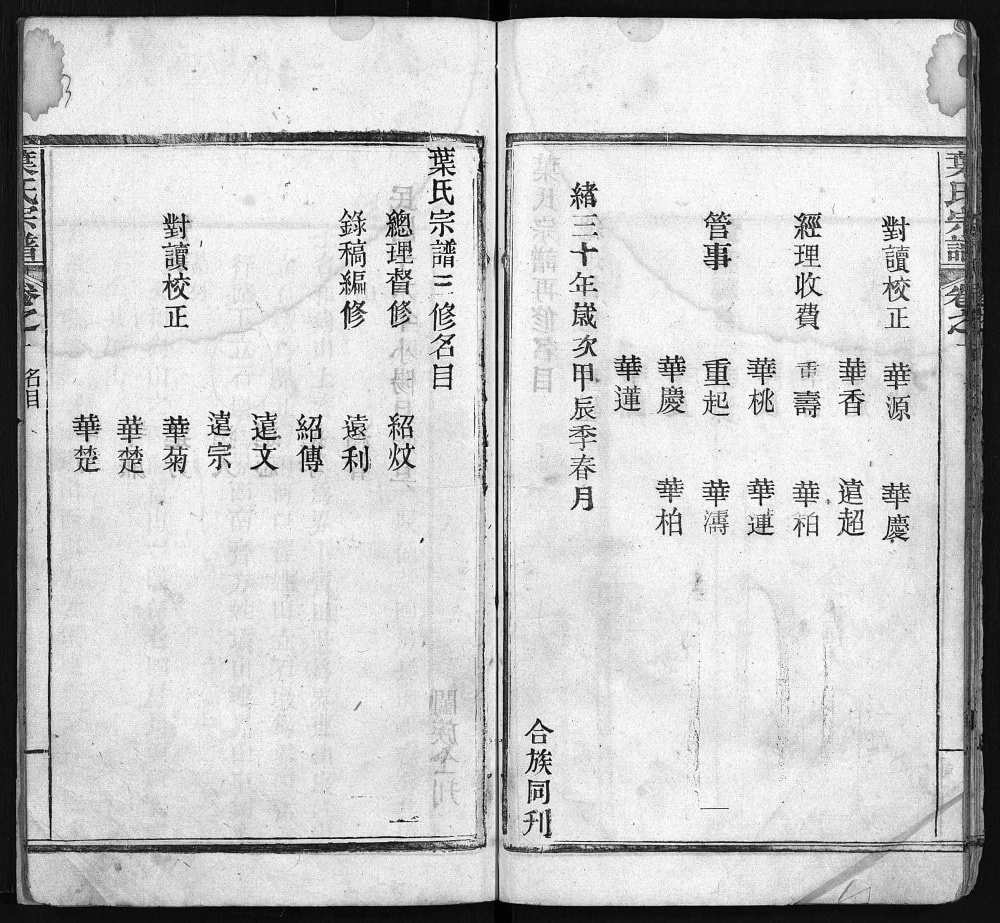 葉氏宗譜 卷之一
對讀校正 華源 華慶
華香 遠超
經理收費 壽 華柏
華桃 華連
管事 重起 華濤
華慶 華柏
華蓮
緒三十年歲次甲辰季春月
合族同刋
葉氏宗譜三修名目
總理督修 紹炆
錄稿編修 遠利
紹傳
遠文
遠宗
對讀校正 華菊
華楚
華楚
葉氏宗譜 卷之一 名目